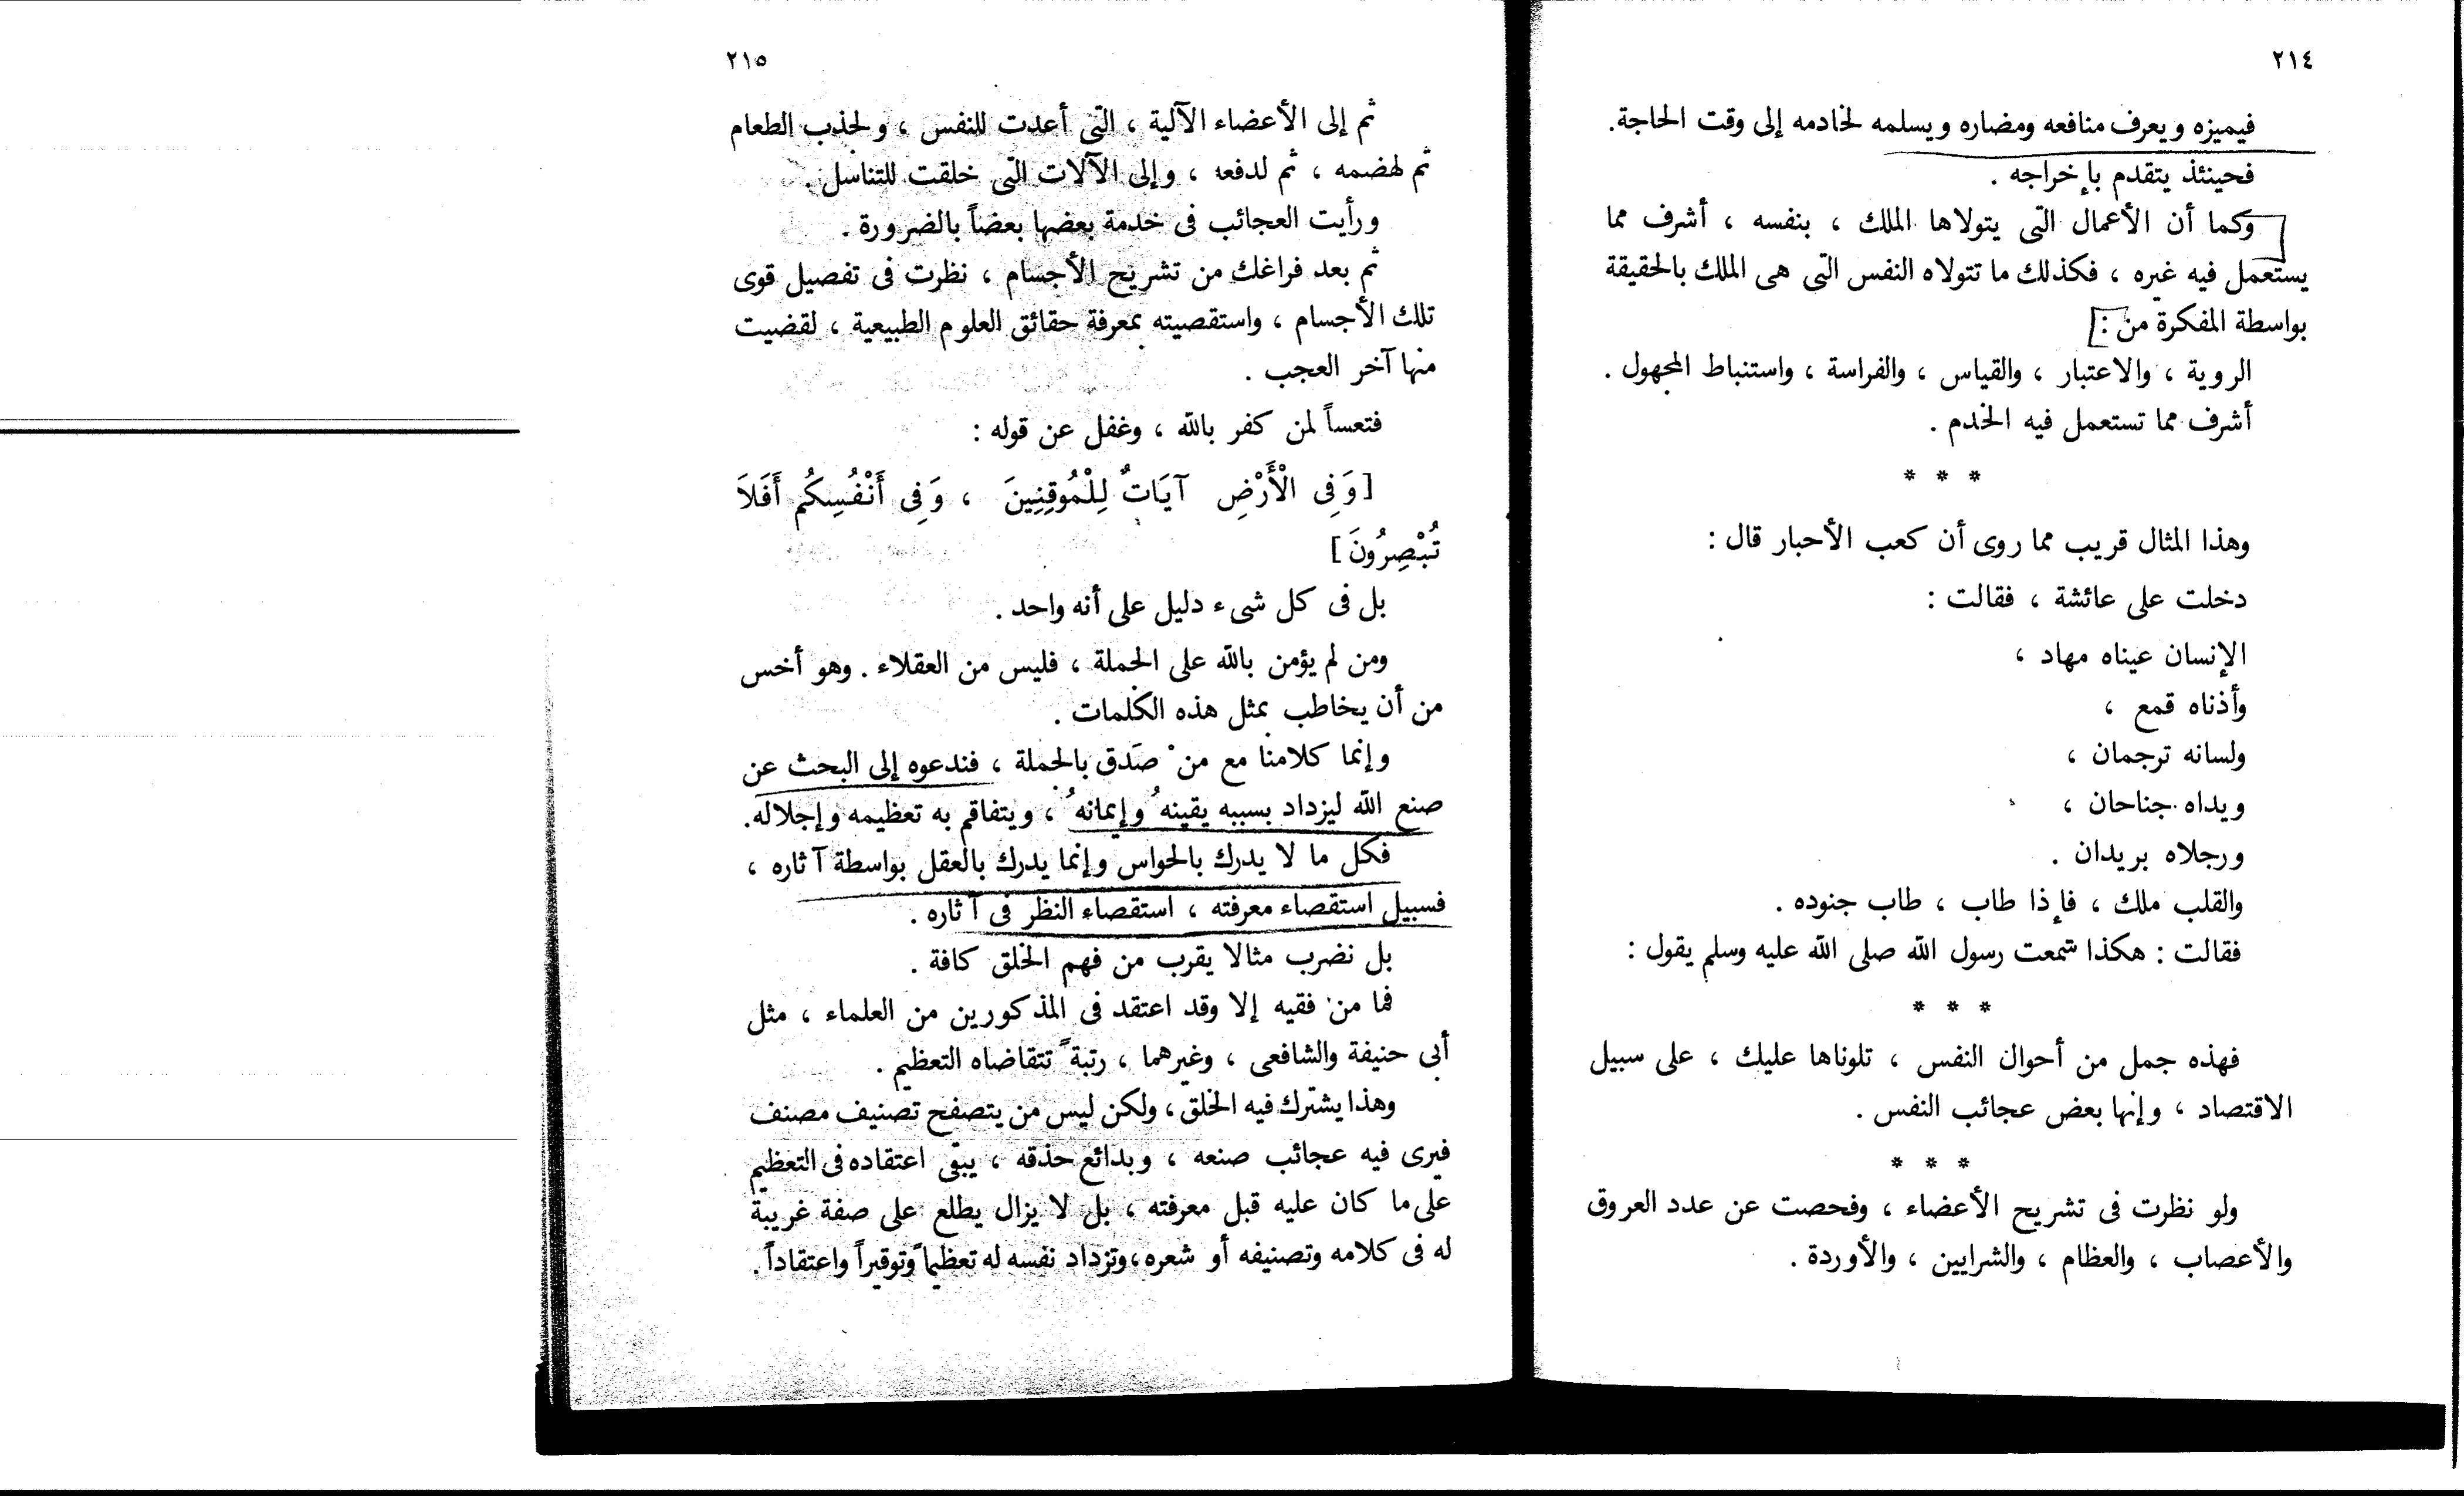 ٢١٤
فيميزه ويعرف منافعه ومضاره ويسلمه لخادمه إلى وقت الحاجة.
فحينئذ يتقدم بإخراجه .
وكما أن الأعمال التى يتولاها الملك ، بنفسه ، أشرف مما
يستعمل فيه غيره ، فكذلك ما تتولاه النفس التى هى الملك بالحقيقة
بواسطة المفكرة من :
الروية ، والاعتبار ، والقياس ، والفراسة ، واستنباط المجهول .
أشرف مما تستعمل فيه الخدم .
* * *
وهذا المثال قريب مما روى أن كعب الأحبار قال :
دخلت على عائشة ، فقالت :
الإنسان عيناه مهاد ،
وأذناه قمع ،
ولسانه ترجمان ،
ويداه جناحان ،
ورجلاه بريدان .
والقلب ملك ، فإذا طاب ، طاب جنوده .
فقالت : هكذا سمعت رسول الله صلى الله عليه وسلم يقول :
* * *
فهذه جمل من أحوال النفس ، تلوناها عليك ، على سبيل
الاقتصاد ، وإنها بعض عجائب النفس .
* * *
ولو نظرت فى تشريح الأعضاء ، وفحصت عن عدد العروق
والأعصاب ، والعظام ، والشرايين ، والأوردة .
٢١٥
ثم إلى الأعضاء الآلية ، التى أعدت للنفس ، ولجذب الطعام
ثم لهضمه ، ثم لدفعه ، وإلى الآلات التى خلقت للتناسل .
ورأيت العجائب فى خدمة بعضها بعضاً بالضرورة .
ثم بعد فراغك من تشريح الأجسام ، نظرت فى تفصيل قوى
تلك الأجسام ، واستقصيته بمعرفة حقائق العلوم الطبيعية ، لقضيت
منها آخر العجب .
فتعساً لمن كفر بالله ، وغفل عن قوله :
[ وَفِى الْأَرْضِ آيَاتٌ لِلْمُوقِنِينَ ، وَفِى أَنْفُسِكُم أَفَلَا
تُبْصِرُونَ ]
بل فى كل شىء دليل على أنه واحد .
ومن لم يؤمن بالله على الجملة ، فليس من العقلاء . وهو أخس
من أن يخاطب بمثل هذه الكلمات .
وإنما كلامنا مع منْ صَدق بالجملة ، فندعوه إلى البحث عن
صنع الله ليزداد بسببه يقينهُ وإيمانهُ ، ويتفاقم به تعظيمه وإجلاله.
فكل ما لا يدرك بالحواس وإنما يدرك بالعقل بواسطة آثاره ،
فسبيل استقصاء معرفته ، استقصاء النظر فى آثاره .
بل نضرب مثالا يقرب من فهم الخلق كافة .
فما من فقيه إلا وقد اعتقد فى المذكورين من العلماء ، مثل
أبى حنيفة والشافعى ، وغيرهما ، رتبةً تتقاضاه التعظيم .
وهذا يشترك فيه الخلق ، ولكن ليس من يتصفح تصنيف مصنف
فيرى فيه عجائب صنعه ، وبدائع حذقه ، يبقى اعتقاده فى التعظيم
على ما كان عليه قبل معرفته ، بل لا يزال يطلع على صفة غريبة
له فى كلامه وتصنيفه أو شعره ، وتزداد نفسه له تعظيماً وتوقيراً واعتقاداً .